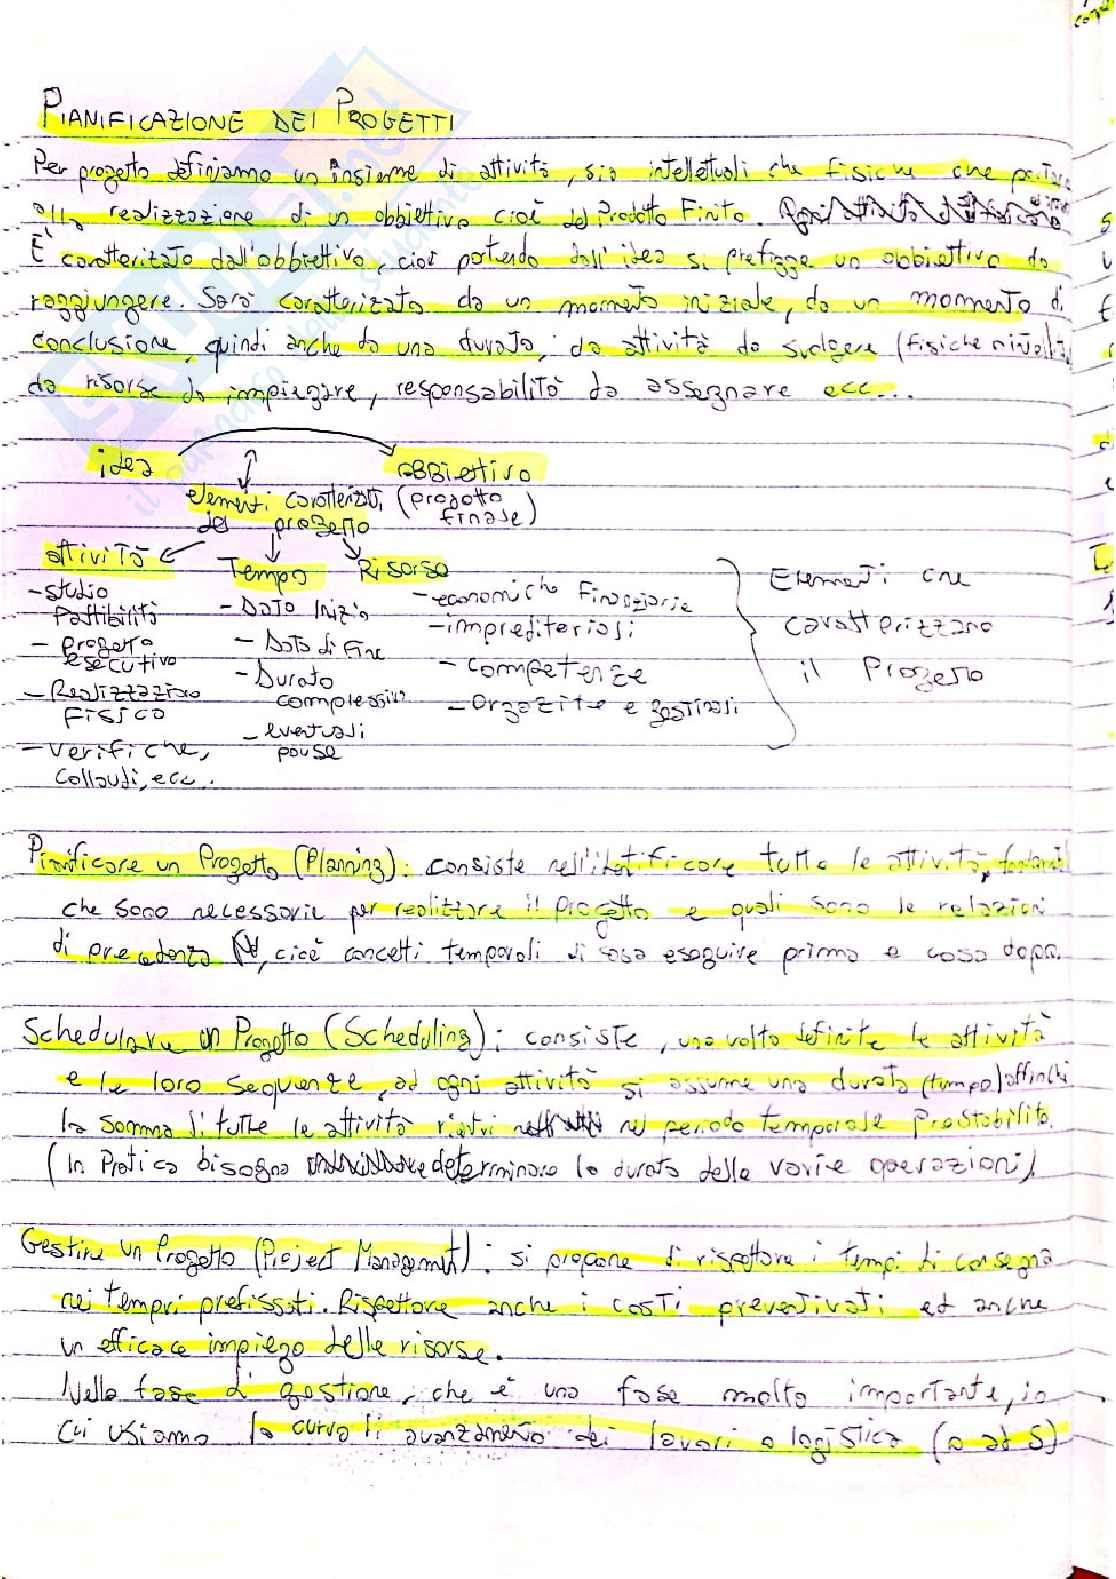 PIANIFICAZIONE DEI PROGETTI
Per progetto definiamo un insieme di attività, sia intellettuali che fisiche che
alla realizzazione di un obbiettivo cioè del Prodotto Finito.
È caratteritato dall'obbiettivo, cioè partendo dall'idea si prefigge un obbiettivo da
raggiungere. Sarà caratterizzato da un momento iniziale, da un momento di
conclusione, quindi anche da una durata, da attività da svolgere (fisiche
da risorse da impiegare, responsabilità da assegnare ecc...
idea
obbiettivo
elementi caratterizzati (progetto
finale)
del progetto
attività
Tempo
Risorse
- studio
fattibilità
- progetto
esecutivo
- Realizzazione
FISICO
- verifiche,
collaudi, ecc.
- Data Inizio
- Data di Fine
- Durata
complessiva
- eventuali
pause
- economiche Finanziarie
- imprenditoriali
- competenze
- organizzative e gestionali
Elementi che
caratterizzano
il Progetto
Pianificare un Progetto (Planning): consiste nell'identificare tutte le attività,
che sono necessarie per realizzare il progetto e quali sono le relazioni
di precedenza, cioè concetti temporali di cosa eseguire prima e cosa dopo.
Schedulare un Progetto (Scheduling): consiste, una volta definite le attività
e le loro sequenze, ad ogni attività si assume una durata (tempo) affinchè
la somma di tutte le attività rientri nel periodo temporale Prestabilito.
(In Pratica bisogna determinare la durata delle varie operazioni).
Gestire un Progetto (Project Management): si propone di rispettare i tempi di consegna
nei tempi prefissati. Rispettare anche i costi preventivati ed anche
un efficace impiego delle risorse.
Nella fase di gestione, che è una fase molto importante, in
cui usiamo la curva di avanzamento dei lavori o logistica (o ad S)